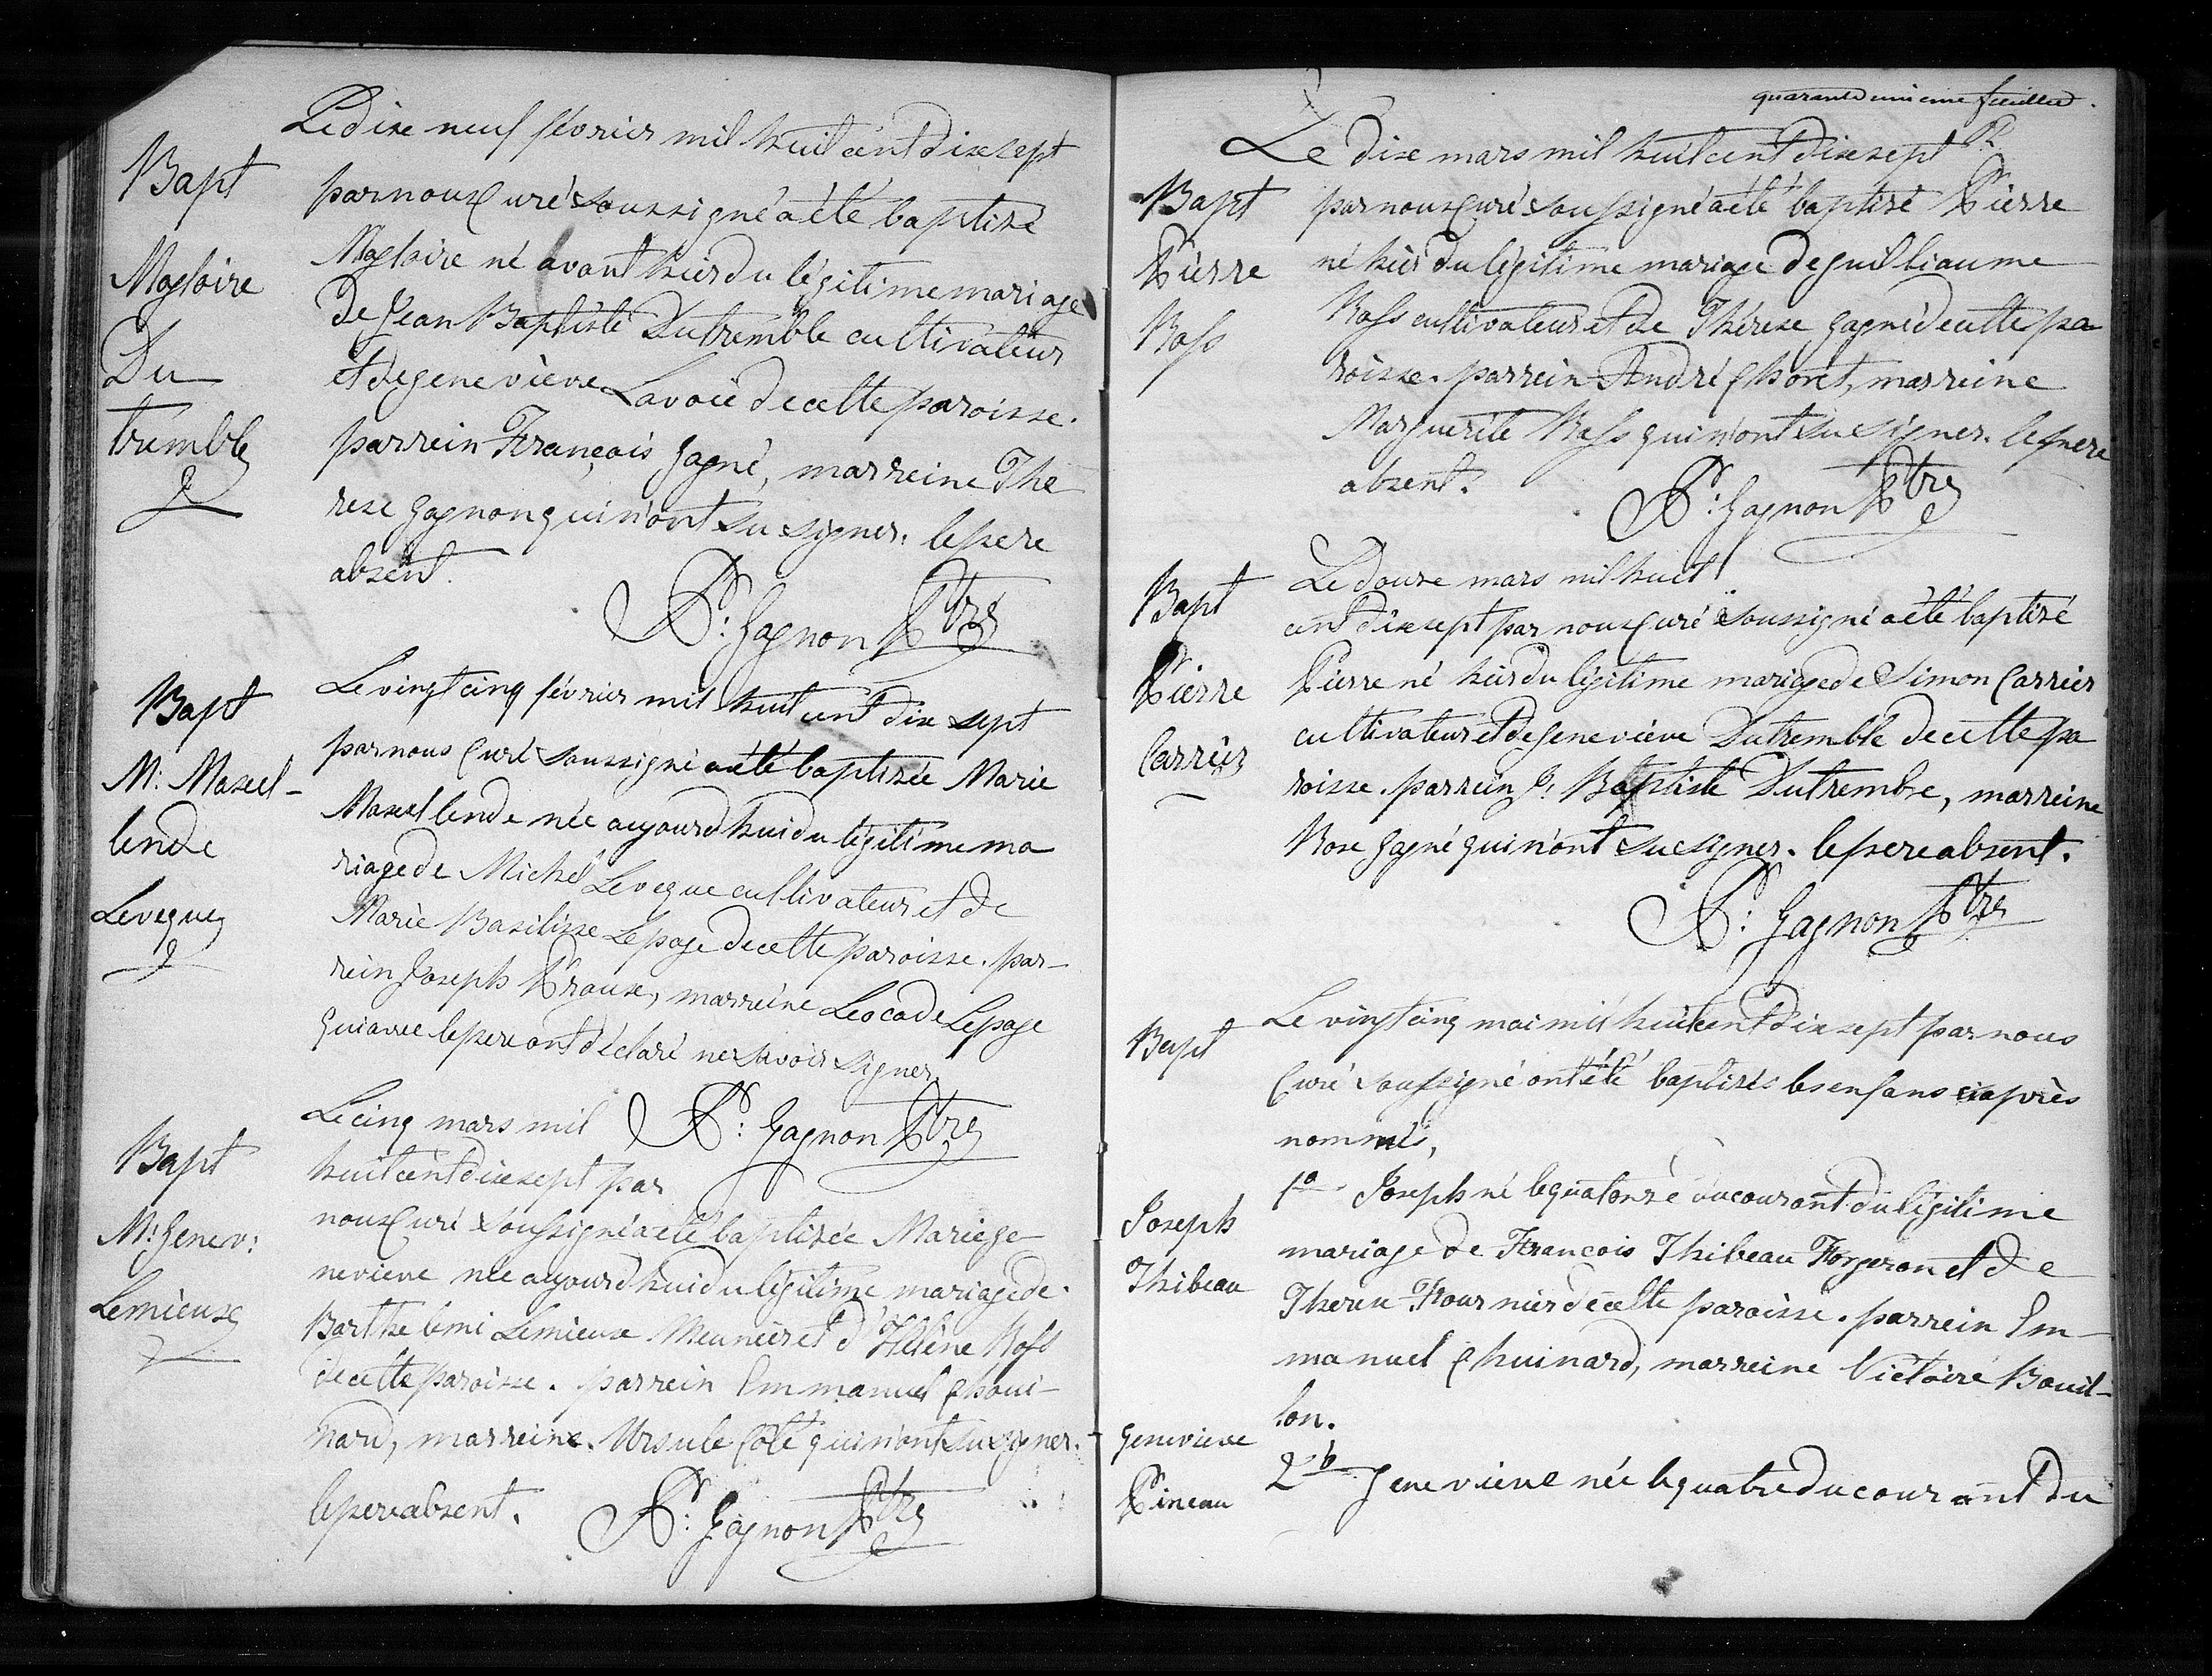 Le dixe neuf février mil huit cent dixe sept
Bapt
par nous Curé soussigné a été baptisé
Magloire
Magloire né avant hier du légitime mariage
de Jean Baptiste Dutremble cultivateur
Du
et de genevieve Lavoie de cette paroisse.
tremble
parrein François gagné, marreine The
rese gagnon qui n'ont su signer. le pere
absent.
Pr: Gagnon Ptre
Bapt
Le vingt cinq février mil huit cent dix sept
par nous Curé soussigné a été baptisée Marie
M: Maxel-
Maxellende née aujourd'hui du légitime ma
lende
riage de Michel Leveque cultivateur et de
Leveque
Marie Basilisse Lepage de cette paroisse. par-
rein Joseph Prouse, marreine Leocade Lepage
qui avec le pere ont déclaré ne savoir signer.
Le cinq mars mil
Pr: Gagnon Ptre
Bapt
huit cent dixe sept par
M: Genev:
nous Curé soussigné a été baptisée Marie ge-
nevieve née aujourd'hui du légitime mariage de
Lemieux
Barthelemi Lemieux Meunier et d'Hélène Ross
de cette paroisse. parrein Emmanuel Choui-
nard, marreine. Ursule Coté qui n'ont su signer.
le pere absent.
Pr: Gagnon Ptre
quarante unieme feuillet.
Le dixe mars mil huit cent dixe sept
Bapt
par nous Curé soussigné a été baptisé Pierre
Pierre
né hier du légitime mariage de guilliaume
Ross
Ross cultivateur et de Thérese gagné de cette pa
roisse. parrein André Choret, marreine
Marguerite Ross qui n'ont su signer. le pere
absent.
Pr: Gagnon Ptre
Bapt
Le douze mars mil huit
cent dixe sept par nous Curé soussigné a été baptisé
Pierre
Pierre né hier du légitime mariage de Simon Carrier
Carrier
cultivateur et de genevieve Dutremble de cette pa
roisse. parrein J: Baptiste Dutrembre, marreine
Rose gagné qui n'ont su signer. le pere absent.
Pr: Gagnon Ptre
Bapt
Le vingt cinq mai mil huit cent dixe sept par nous
Curé soussigné ont été baptisés les enfans ci après
nommés,
1o Joseph né le quatorze du courant du légitime
Joseph
mariage de Francois Thibeau Forgeron et de
Thibeau
Therese Fournier de cette paroisse. parrein Em-
manuel Chuinard, marreine Victoire Bouil-
lon.
Genevieve
2o Genevieve née le quatre du courant du
Pineau